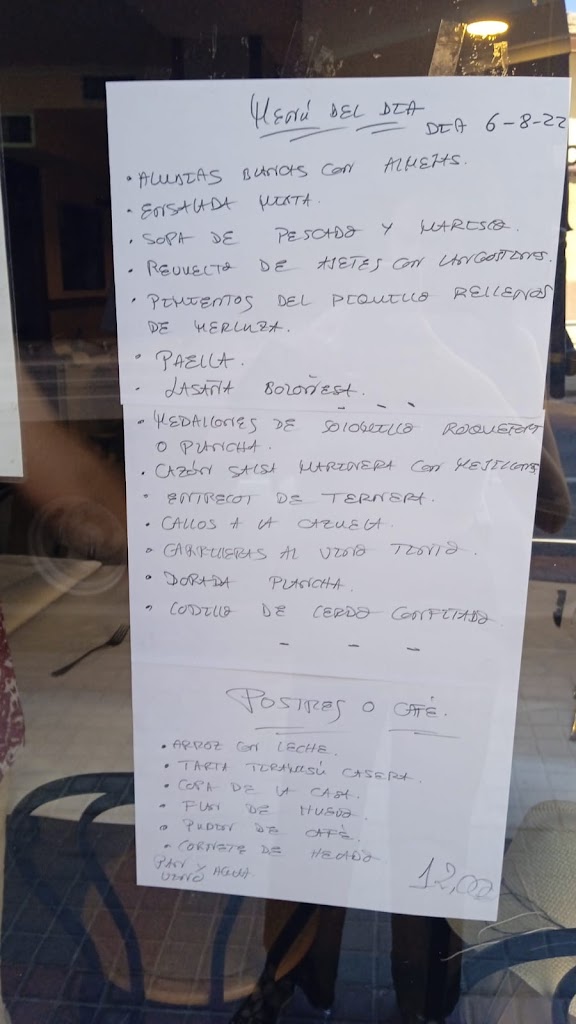 MENÚ DEL DIA
DIA 6-8-22
• ALUBIAS BLANCAS CON ALMEJAS.
• ENSALADA MIXTA.
• SOPA DE PESCADO Y MARISCO.
• REVUELTO DE AJETES CON LANGOSTINOS.
• PIMIENTOS DEL PIQUILLO RELLENOS
DE MERLUZA.
• PAELLA.
• LASAÑA BOLOÑESA.
- - -
• MEDALLONES DE SOLOMILLO ROQUEFORT
O PLANCHA.
• CAZÓN SALSA MARINERA CON MEJILLONES
• ENTRECOT DE TERNERA.
• CALLOS A LA CAZUELA.
• CARRILLERAS AL VINO TINTO.
• DORADA PLANCHA.
• CODILLO DE CERDO CONFITADO.
- - -
POSTRES O CAFÉ.
• ARROZ CON LECHE.
• TARTA TIRAMISÚ CASERA.
• COPA DE LA CASA.
• FLAN DE HUEVO.
• PUDIN DE CAFÉ.
• CORNETE DE HELADO
PAN Y
VINO AGUA.
12,00